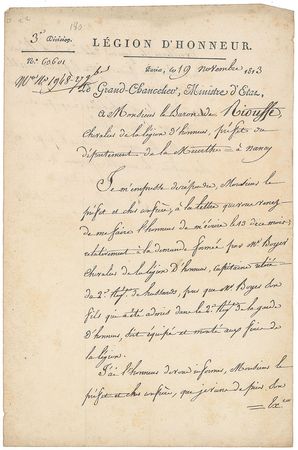 3e Division.
LÉGION D'HONNEUR.
No. 60601
Paris, le 19 novembre 1813
Le Grand-Chancelier, Ministre d'État,
A Monsieur le Baron de Riouffe,
chevalier de la légion d'honneur, préfet du
département de la Meurthe à nancy
Je m'empresse de répondre, Monsieur le
préfet et cher confrère, à la lettre que vous venez
de me faire l'honneur de m'écrire le 13 de ce mois,
relativement à la demande formée par Mr. Boyer
chevalier de la légion d'honneur, capitaine retiré
du 2e. Régt. de hussards, pour que Mr. Boyer son
fils qui a été admis dans le 2e. Régt. de la garde
D'honneur, soit équipé et monté aux frais de
la légion.
J'ai l'honneur de vous informer, Monsieur le
préfet et cher confrère, que je viens de faire